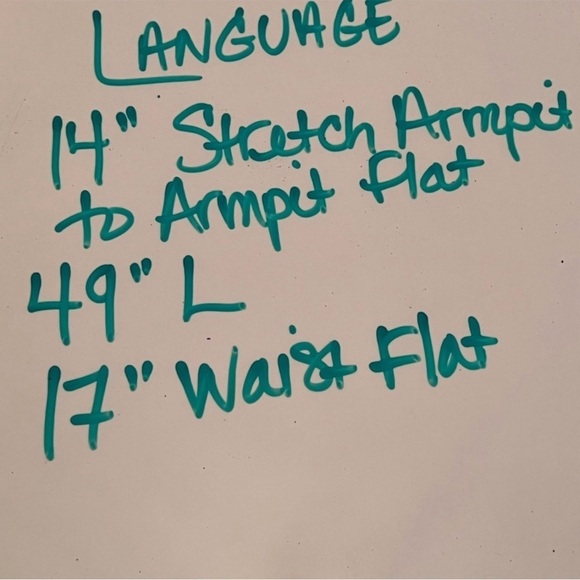 LANGUAGE
14" Stretch Armpit
to Armpit Flat
49" L
17" Waist Flat